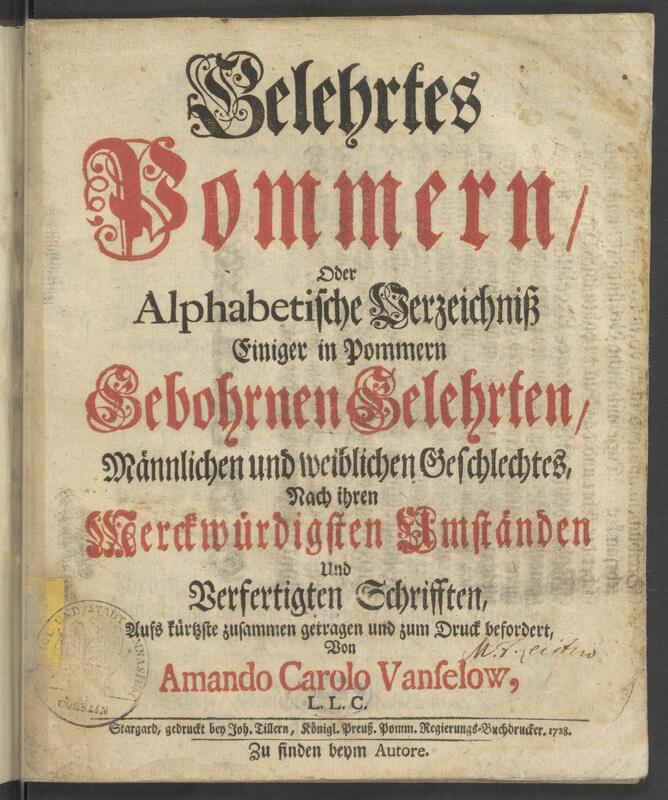 Gelehrtes
Pommern/
Oder
Alphabetische Verzeichniß
Einiger in Pommern
Gebohrnen Gelehrten/
Männlichen und weiblichen Geschlechtes,
Nach ihren
Merckwürdigsten Umständen
Und
Verfertigten Schrifften,
Aufs kürtzste zusammen getragen und zum Druck befordert,
Von
Amando Carolo Vanselow,
L. L. C.
Stargard, gedruckt bey Joh. Tillern, Königl. Preuß. Pomm. Regierungs-Buchdrucker. 1728.
Zu finden beym Autore.
UND STADT